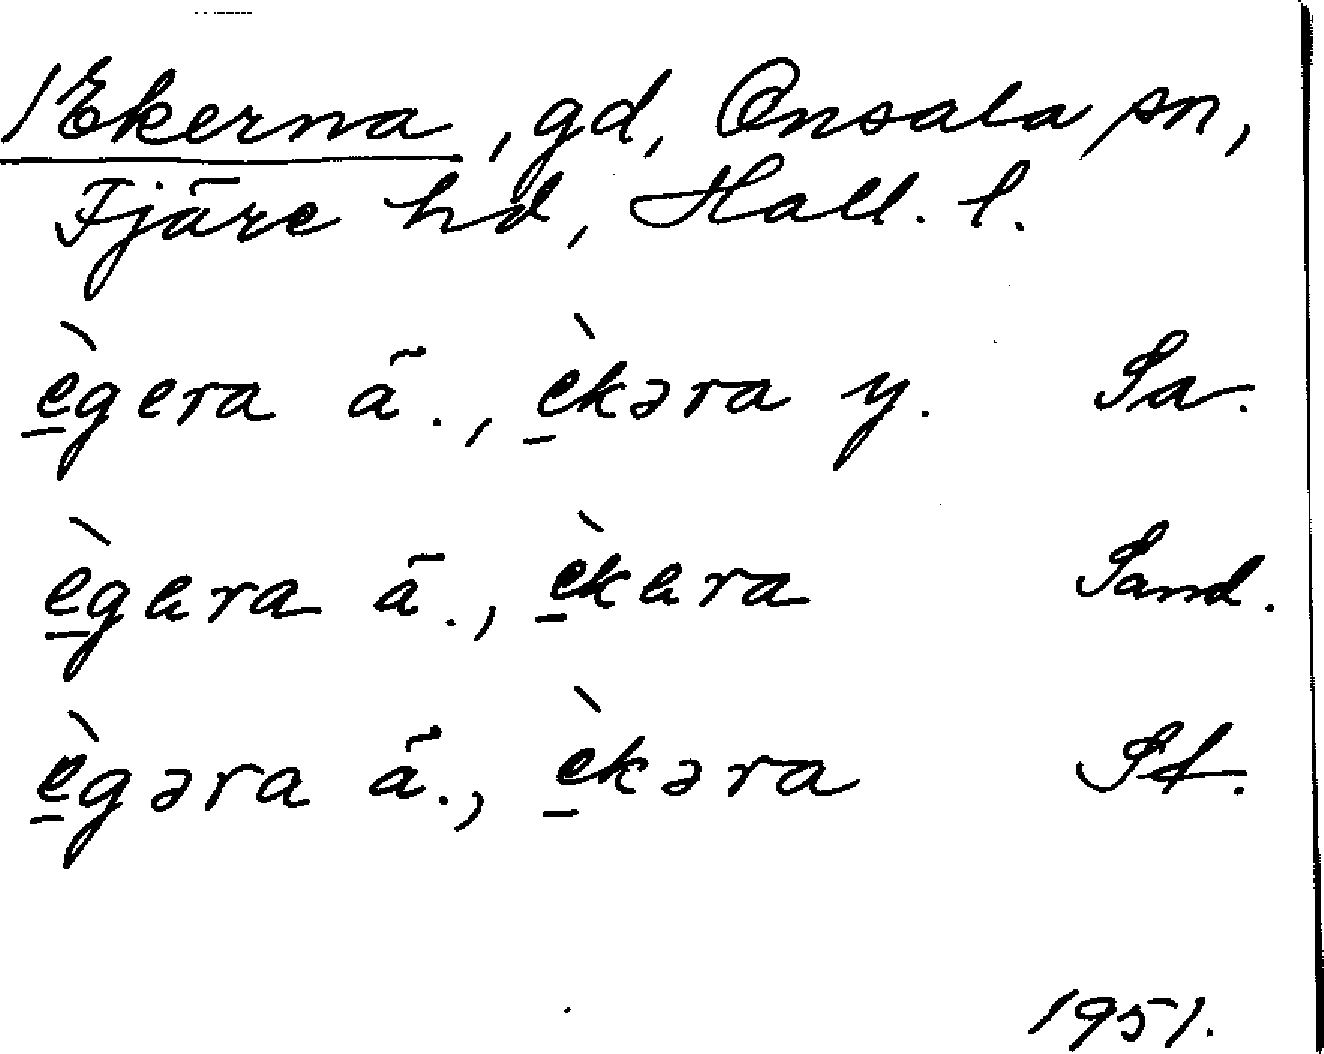 /Ekerna, gd, Onsala sn,
Fjäre hd, Hall. l.
è̱gera ä., è̱kəra y. Sa.
è̱gara ä., è̱kara Sand.
è̱gəra ä., è̱kəra St.
1951.